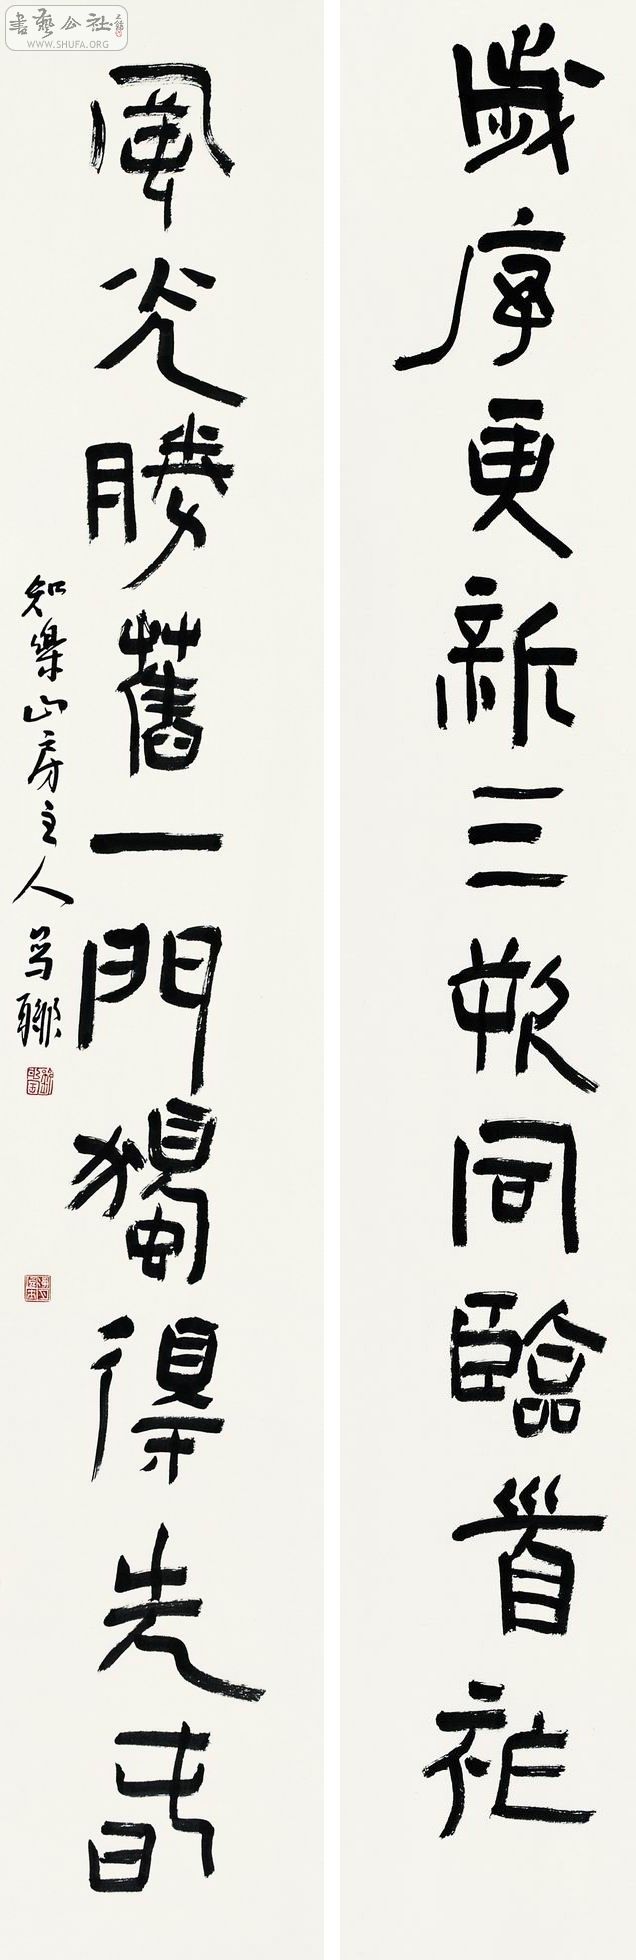 書藝公社
WWW.SHUFA.ORG
歲序更新三朔同臨首祚
風光勝舊一門獨得先春
知樂山房主人 聯